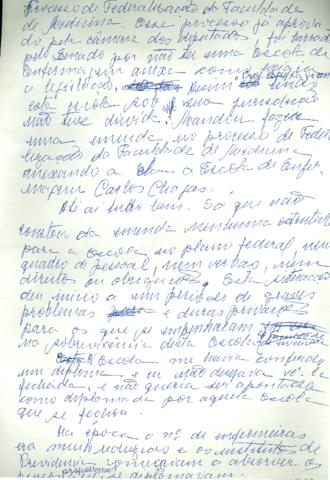 Processo de Federalização da Faculdade
de Medicina. Esse processo já aprova
do pela câmara dos deputados, foi barrado
pelo Senado por não ter uma Escola de
Enfermagem anexa como exigia
a legislação. Assim tendo
esta escola sob sua jurisdição
não teve dúvida. Mandou fazer
uma emenda no processo de Federa
lização da Faculdade de Medicina
anexando a ela a Escola de Enfer
magem Carlos Chagas.
Até aí tudo bem. Só que não
constou da emenda nenhuma estrutura
para a escola no plano federal, nem
quadro de pessoal, nem verbas, nem
direitos ou obrigações. Esta situação
deu início a um período de graves
problemas e duras provações
para os que se empenhavam
na sobrevivência desta Escola
A Escola me havia conferido
um diploma e eu não desejava vê-la
fechada, e não queria ser apontada
como diplomada por aquela Escola
que se fechou.
Na época o nº de enfermeiras
era muito reduzido e os institutos de
Previdência começavam a absorver as
que se diplomavam.